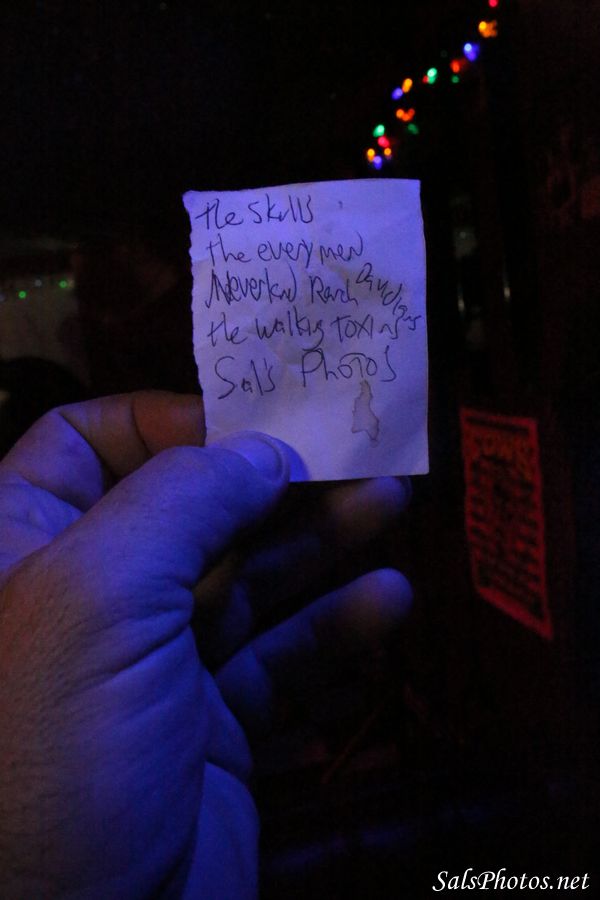 the Skulls
the everymen
Neverland Ranch Davidians
the walking Toxins
Sal's Photos
SalsPhotos.net